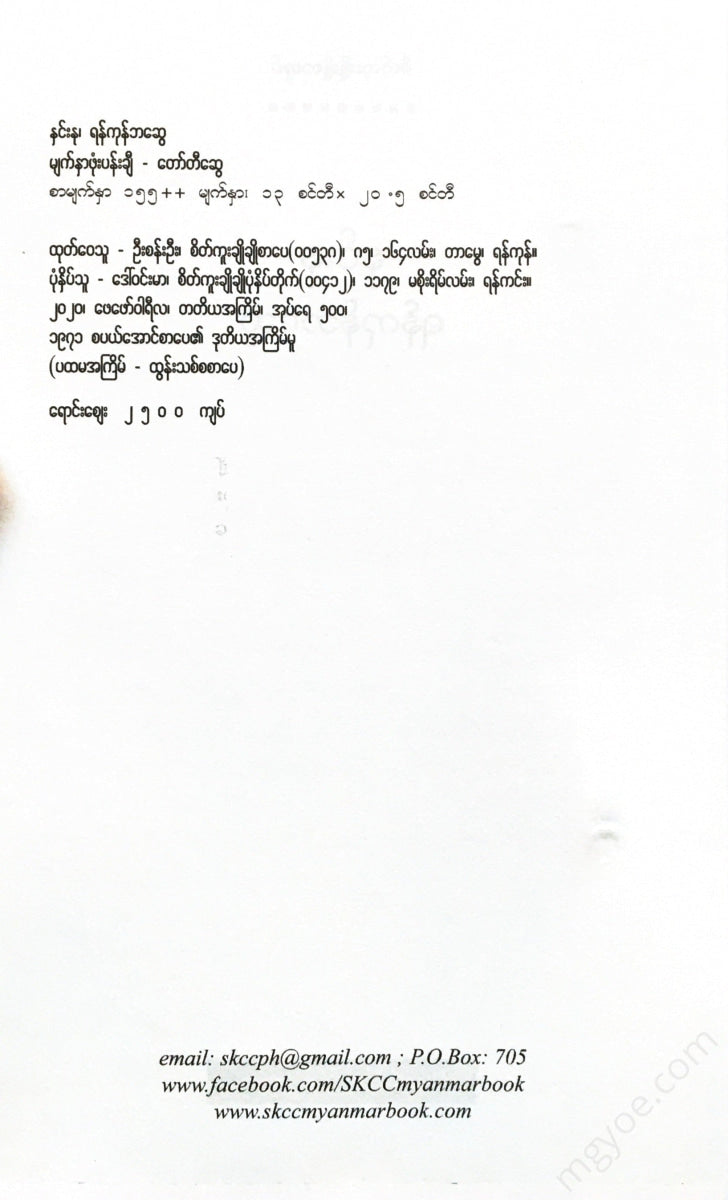 နှင်းနု၊ ရန်ကုန်ဘဆွေ
မျက်နှာဖုံးပန်းချီ - တော်တီဆွေ
စာမျက်နှာ ၁၅၅++ မျက်နှာ၊ ၁၃ စင်တီ× ၂၀.၅ စင်တီ
ထုတ်ဝေသူ - ဦးစန်းဦး၊ စိတ်ကူးချိုချိုစာပေ(၀၀၅၃၈)၊ ၈၅၊ ၁၆၄လမ်း၊ တာမွေ၊ ရန်ကုန်။
ပုံနှိပ်သူ - ဒေါ်ဝင်းမာ၊ စိတ်ကူးချိုချိုပုံနှိပ်တိုက်(၀၀၄၁၂)၊ ၁၁၇၉၊ မစိုးရိမ်လမ်း၊ ရန်ကင်း။
၂၀၂၀၊ ဖေဖော်ဝါရီလ၊ တတိယအကြိမ်၊ အုပ်ရေ ၅၀၀၊
၁၉၇၁ စပယ်အောင်စာပေ၏ ဒုတိယအကြိမ်မူ
(ပထမအကြိမ် - ထွန်းသစ်စစာပေ)
ရောင်းစျေး ၂၅၀၀ ကျပ်
email: skccph@gmail.com ; P.O.Box: 705
www.facebook.com/SKCCmyanmarbook
www.skccmyanmarbook.com
mgyoe.com